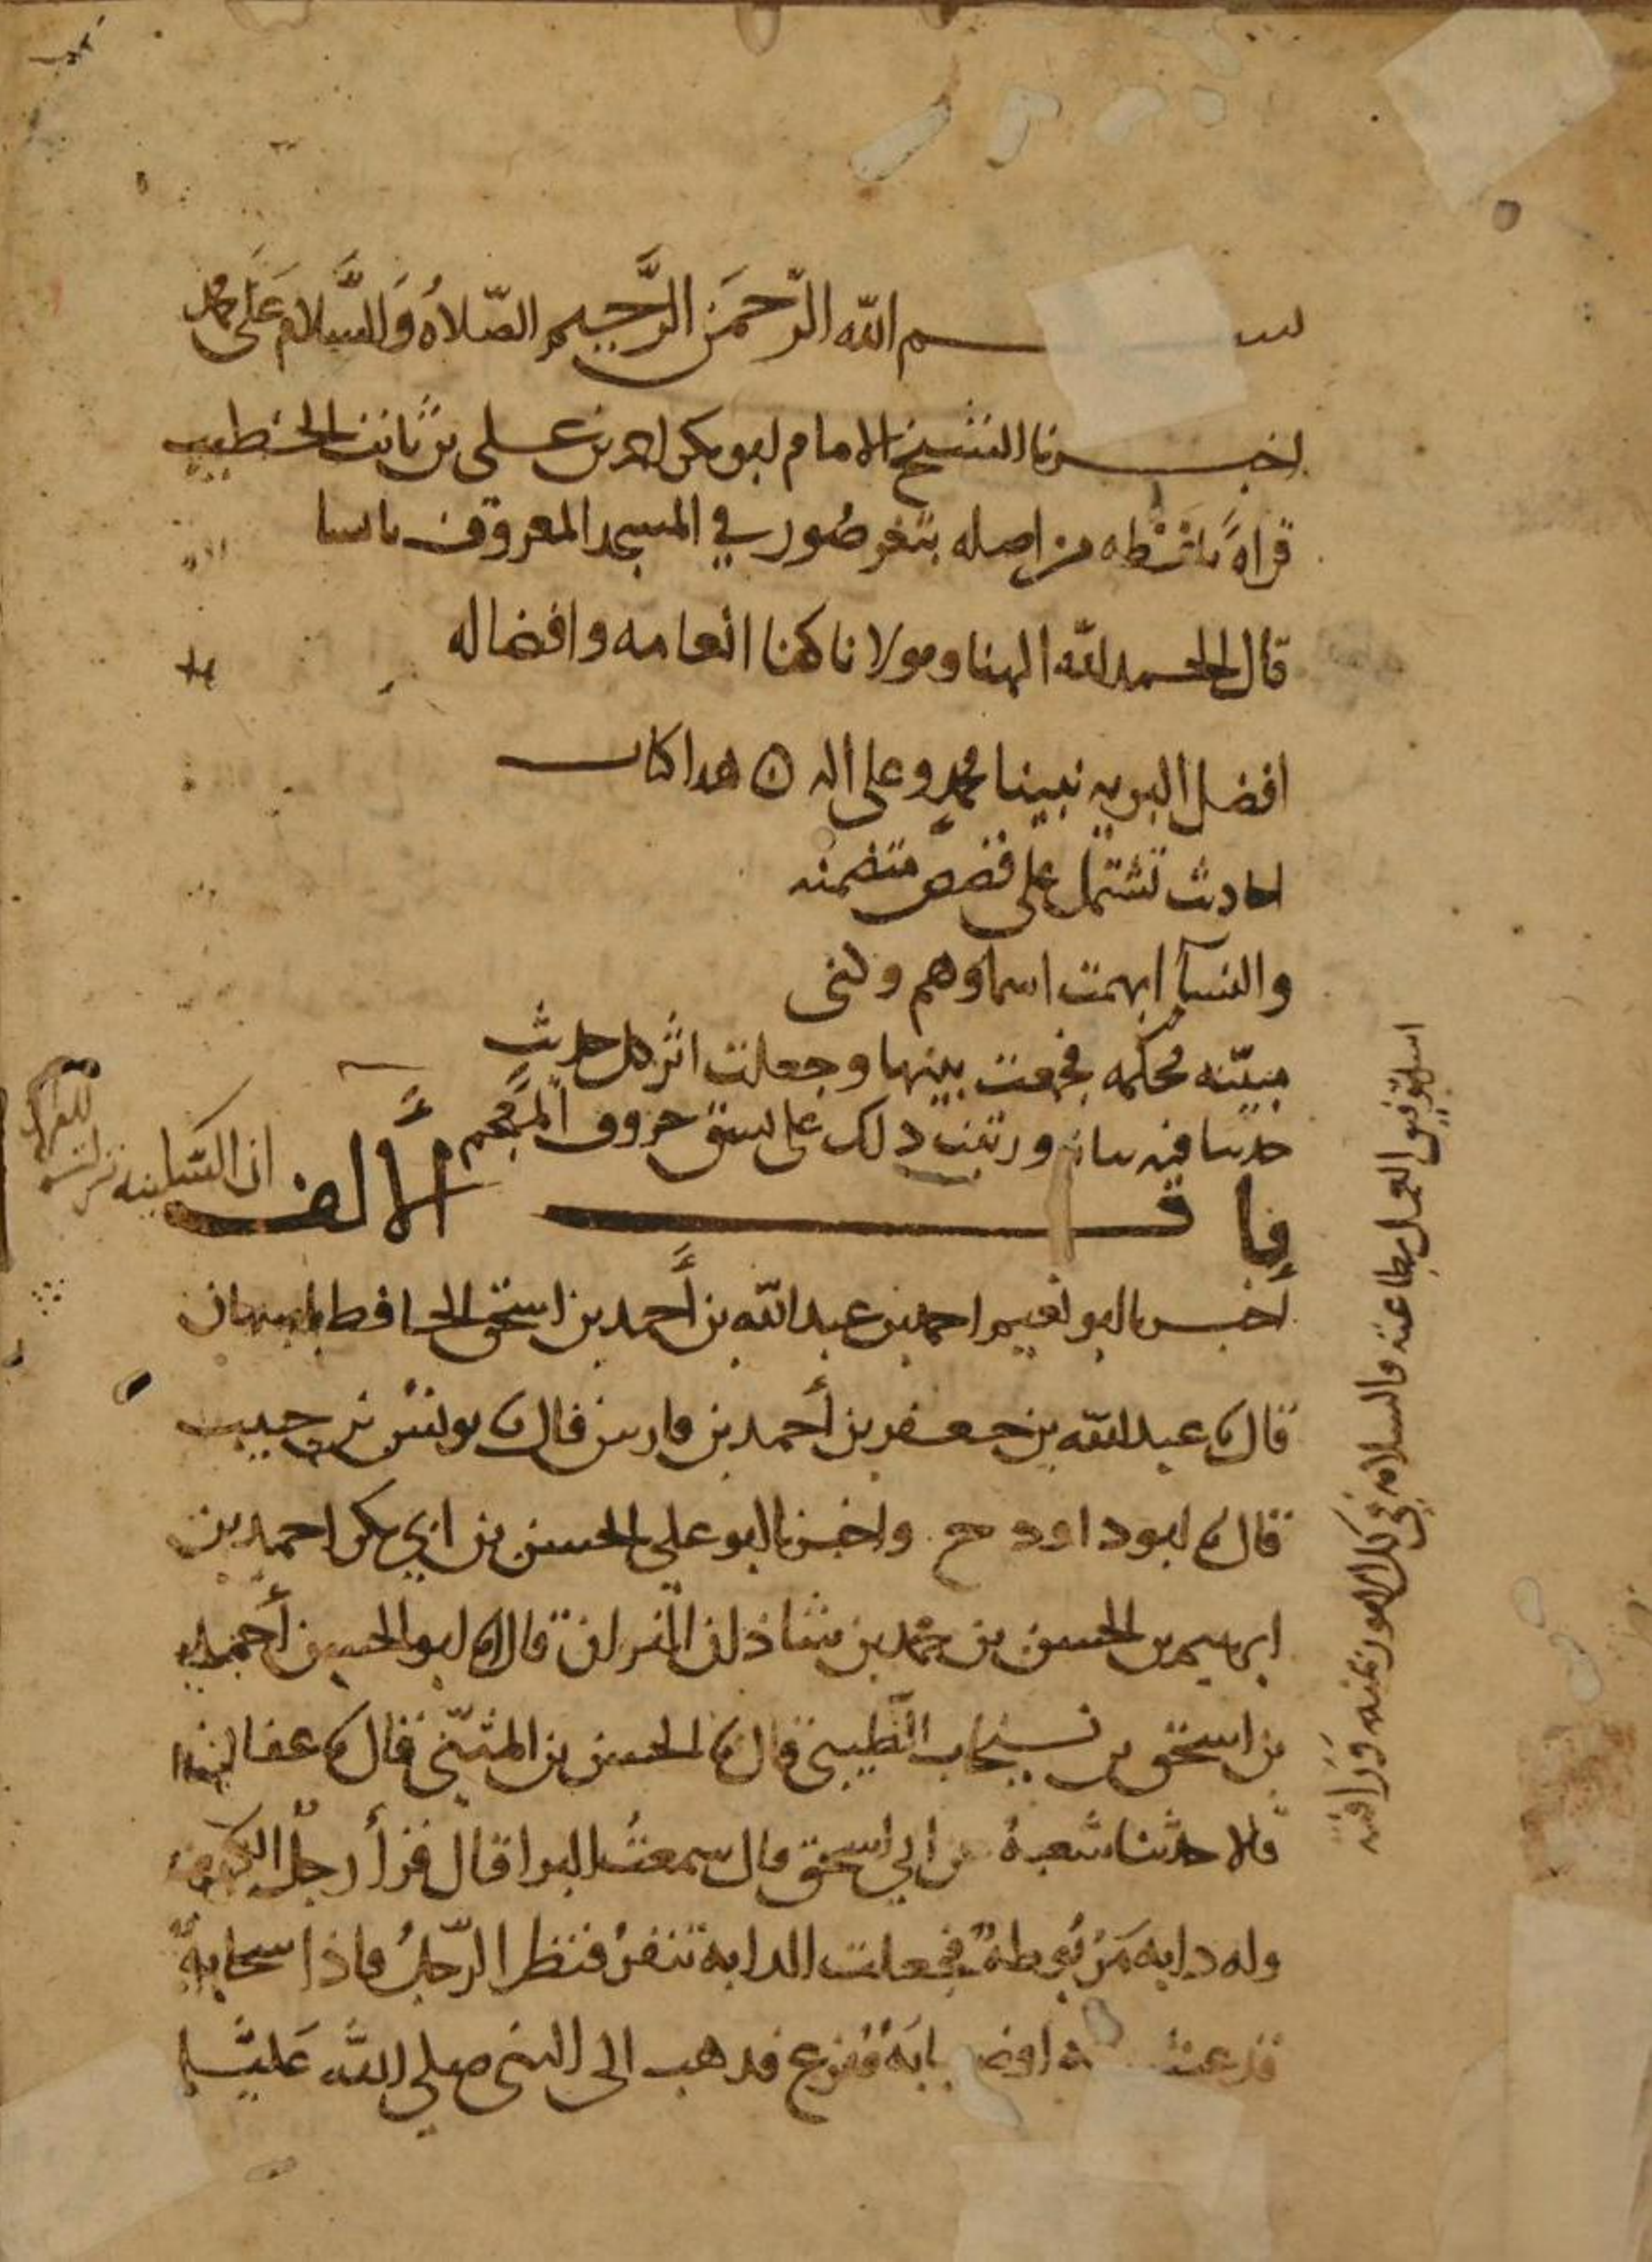 بسم الله الرحمن الرحيم الصلاة والسلام على محمد
اخبرنا الشيخ الامام ابو بكر احمد بن علي بن ثابت الخطيب
قراة بلفظه من اصله بثغر صور في المسجد المعروف
قال الحمد لله الهنا ومولانا كفا انعامه وافضاله
افضل البريه نبينا محمد وعلى اله هدا كتاب
احاديث تشتمل على قصص متضمنه
والنسآ ابهمت اسماوهم وكنى
مبيّنه محكمه فجمعت بينها وجعلت اثر كل حديث
حديثا فيه بيانه ورتبت دلك على نسق حروف المعجم
باب الألف
أخبرنا ابو نعيم احمد بن عبد الله بن أحمد بن اسحق الحافظ باصبهان
قال نا عبد الله بن جعفر بن أحمد بن فارس قال نا يونس بن حبيب
قال نا ابو داود ح واخبرنا ابو علي الحسن بن ابي بكر احمد بن
ابرهيم بن الحسن بن محمد بن شاذان البزاز قال نا ابو الحسين أحمد
بن اسحق بن نيخاب الطيبي قال نا الحسن بن المثنى قال نا عفان
قالا حدثنا شعبة عن ابي اسحق قال سمعت البرا قال قرأ رجل الكهف
وله دابه مربوطة فجعلت الدابة تنفر فنظر الرجل فاذا سحابة
قد غشته او ضبابة ففزع فدهب الى النبي صلى الله عليه
ان السكينه نزلت
للقران
اسله توفيق العمل بطاعته والسلامه في كل الامور بمنه ورافته